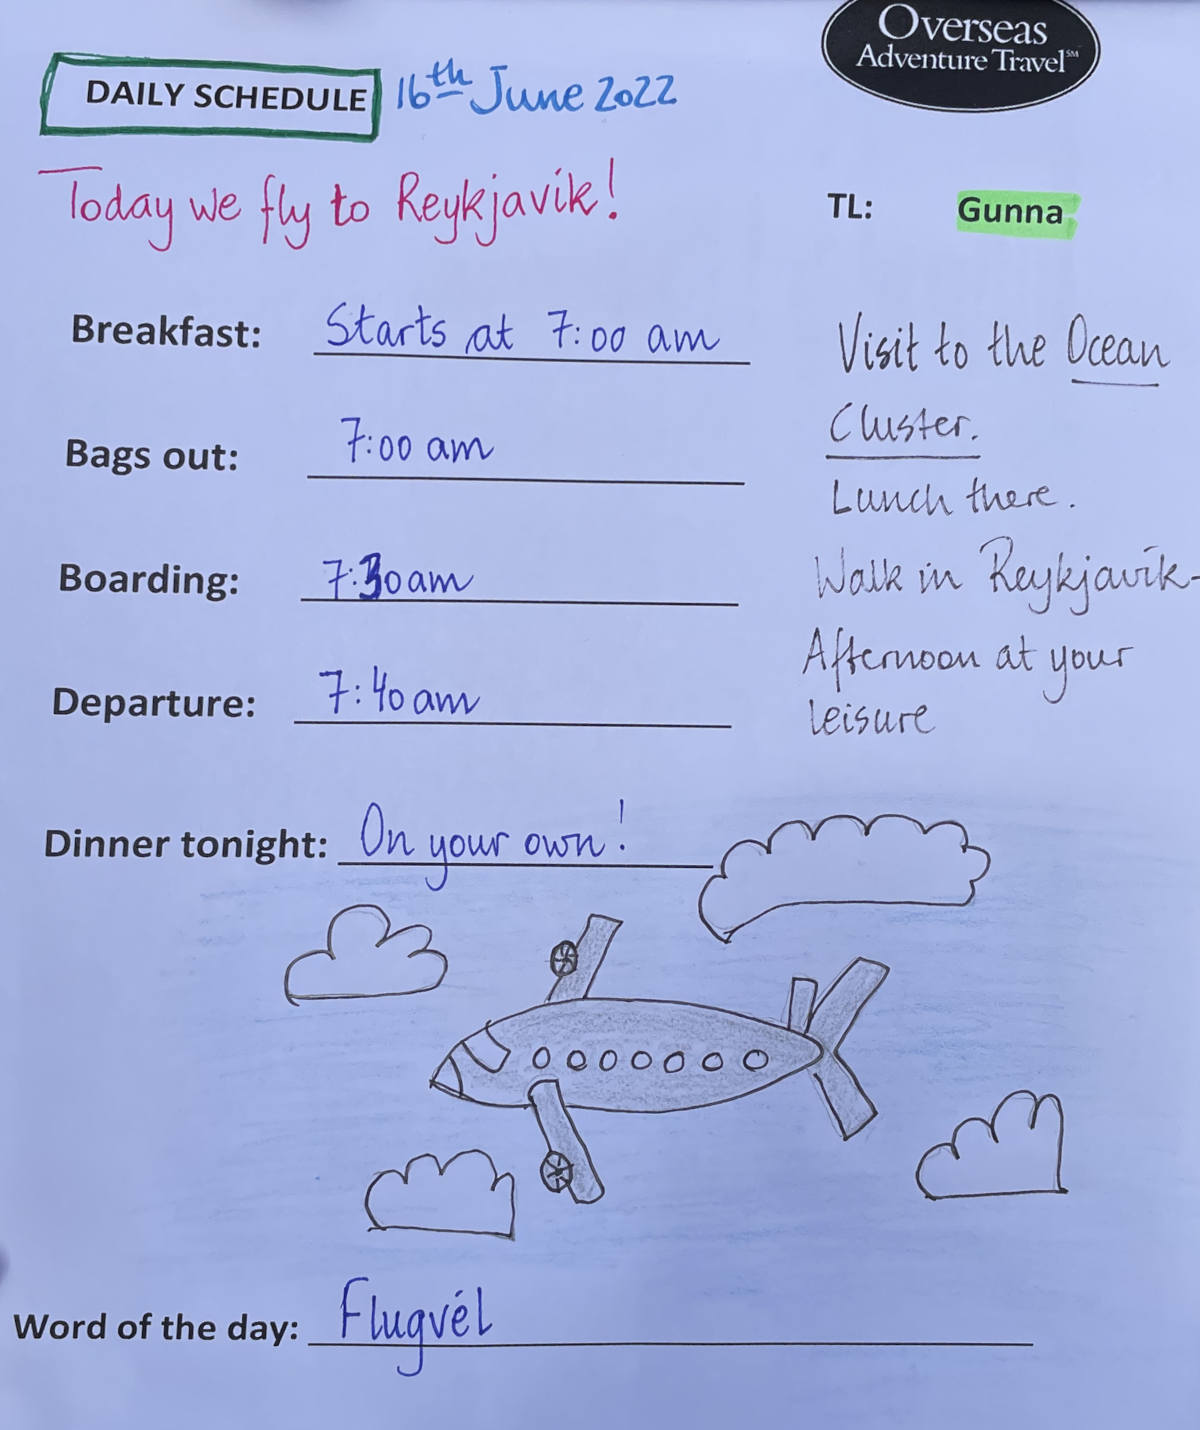 Overseas
Adventure Travel℠
DAILY SCHEDULE 16th June 2022
Today we fly to Reykjavík!
TL: Gunna
Breakfast: Starts at 7:00 am
Bags out: 7:00 am
Boarding: 7:30 am
Departure: 7:40 am
Visit to the Ocean
Cluster.
Lunch there.
Walk in Reykjavík-
Afternoon at your
leisure
Dinner tonight: On your own!
Word of the day: Flugvél